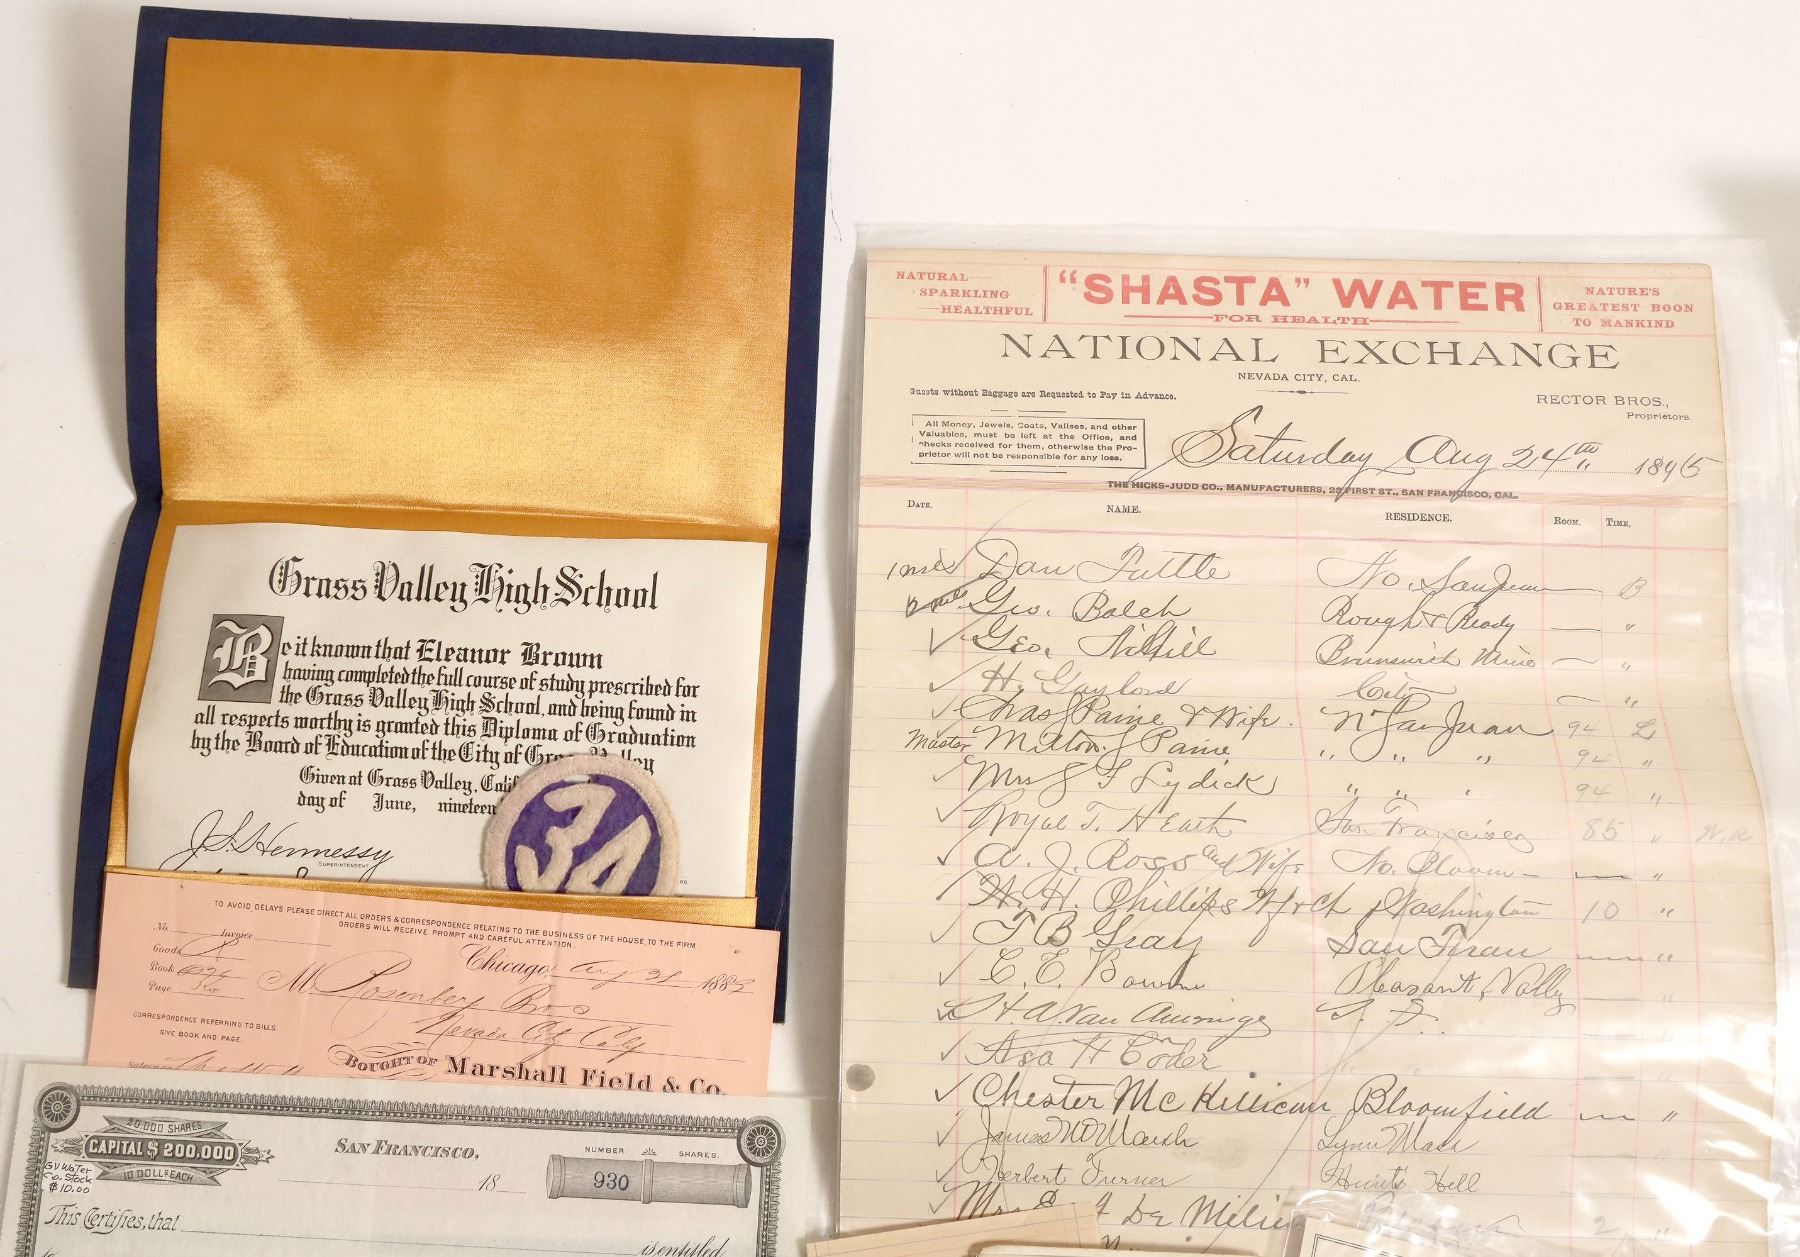 Grass Valley High School
Be it known that Eleanor Brown
having completed the full course of study prescribed for
the Grass Valley High School, and being found in
all respects worthy is granted this Diploma of Graduation
by the Board of Education of the City of Grass Valley
Given at Grass Valley, Calif
day of June, nineteen
J.S. Hennessy
SUPERINTENDENT
34
TO AVOID DELAYS PLEASE DIRECT ALL ORDERS & CORRESPONDENCE RELATING TO THE BUSINESS OF THE HOUSE, TO THE FIRM
ORDERS WILL RECEIVE PROMPT AND CAREFUL ATTENTION.
No. Invoice
Goods R
Book
Page
Chicago, Aug 1883
M Rosenberg Bros
Nevada City Caly
CORRESPONDENCE REFERRING TO BILLS.
GIVE BOOK AND PAGE.
Salesman
BOUGHT OF Marshall Field & Co.
20,000 SHARES
CAPITAL $200,000
10 DOLLS EACH
GV Water
Co. Stock
$10.00
SAN FRANCISCO,
18
NUMBER. SHARES.
930
This Certifies, that
is entitled
to
NATURAL
SPARKLING
HEALTHFUL
"SHASTA" WATER
FOR HEALTH
NATURE'S
GREATEST BOON
TO MANKIND
NATIONAL EXCHANGE
NEVADA CITY, CAL.
Guests without Baggage are Requested to Pay in Advance.
RECTOR BROS.,
Proprietors.
All Money, Jewels, Coats, Valises, and other
Valuables, must be left at the Office, and
checks received for them, otherwise the Pro-
prietor will not be responsible for any loss.
Saturday Aug 24th 1895
THE HICKS-JUDD CO., MANUFACTURERS, 23 FIRST ST., SAN FRANCISCO, CAL.
DATE. NAME. RESIDENCE. ROOM. TIME.
Dan Tuttle No. San Juan — B
Geo. Balch Rough & Ready — "
Geo. Brunswick Mine — "
H. Gaylord City — "
Chas Paine & Wife. N San Juan 94 L
Master Milton Paine " " " 94 "
Mrs J F Lydick " " " 94 "
Royal T. Heath San Francisco 85 "
A. J. Ross and Wife No. Bloom — "
W. H. Phillips Wf & Ch Washington 10 "
T B Gray San Fran — "
C. E. Bowne Pleasant Valley — "
H. A. Van S. F. — "
Asa H Coder " " — "
Chester McKillican Bloomfield — "
James W Marsh Lynn Mass
Herbert Turner Hunt's Hill
Mrs 2 "